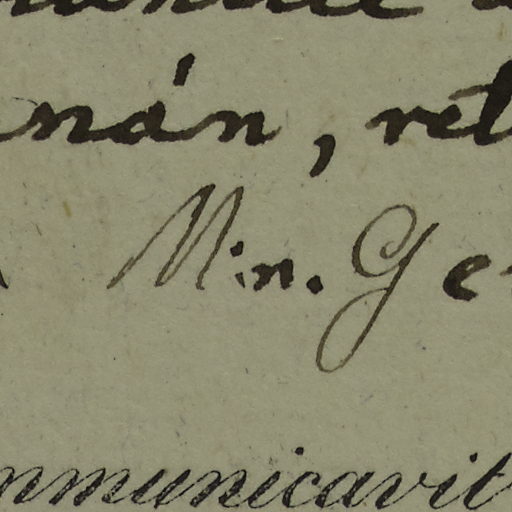 nán, ret
Min. Ge
nmunicavit